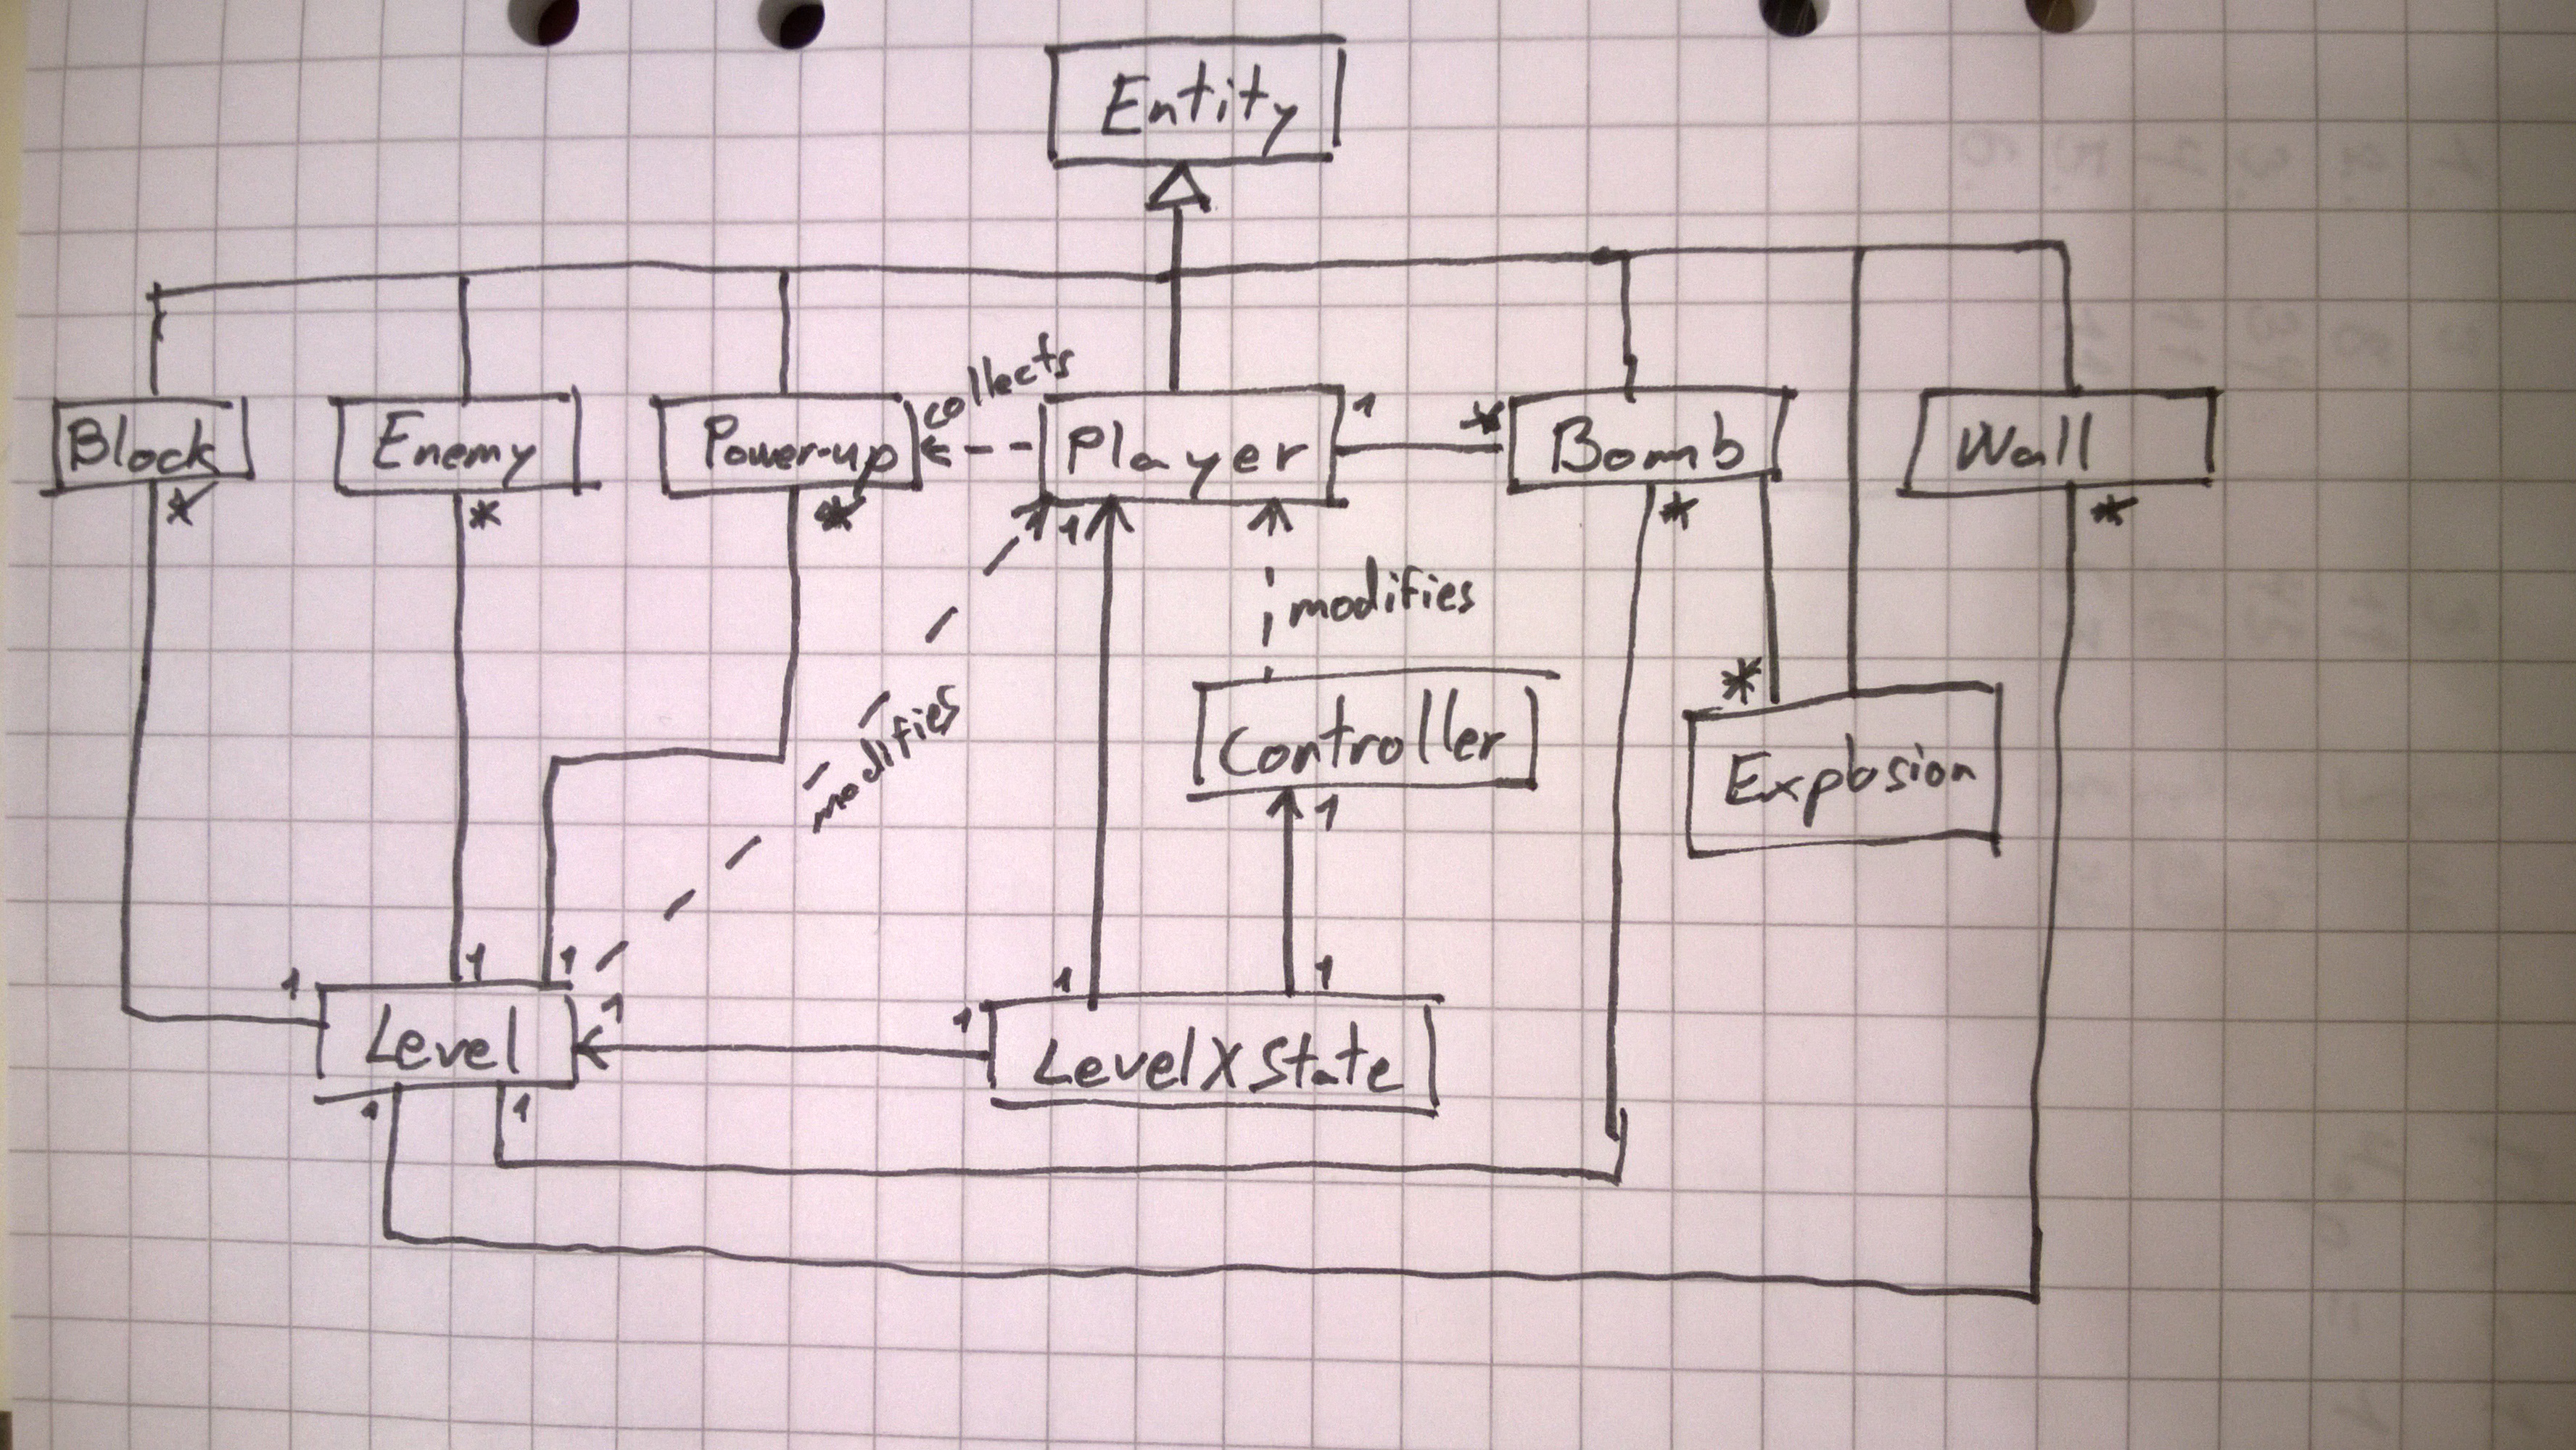 Entity
collects
Block
Enemy
Power-up
Player
1
*
Bomb
Wall
*
*
*
1
*
*
modifies
*
modifies
Controller
Explosion
1
1
1
1
1
1
1
1
Level
LevelXState
1
1